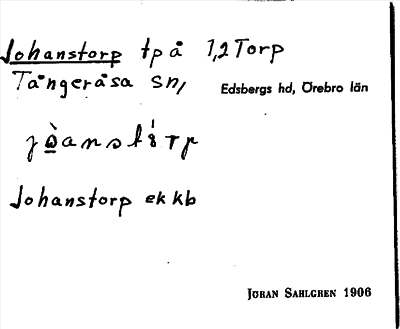 Johanstorp tp å 1,2 Torp
Tångeråsa sn,
Edsbergs hd, Örebro län
Johanstorp ek kb
JÖRAN SAHLGREN 1906